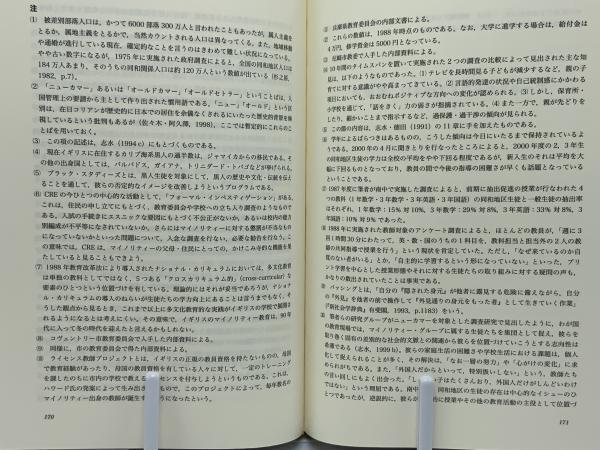 注
(1) 被差別部落人口は、かつて6000部落300万人と言われたこともあったが、属人主義を
とるか、属地主義をとるかで、当然カウントされる人口は異なってくる。また、地域移動
や通婚が進行している現在、確定的なことを言うのはきわめて難しい状況になっている。
やや古い数字になるが、1975年に実施された政府調査によると、全国の同和地区人口は
184万人あまり、そのうちの同和関係人口は約120万人という数値が出ている(杉之原、
1982, p.7)。
(2) 「ニューカマー」あるいは「オールドカマー」「オールドセトラー」ということばは、人
国管理上の要請から主として作り出された慣用語である。「ニュー」「オールド」という区
別は、在日コリアンが歴史的に日本での居住を余儀なくされるにいたった歴史的背景を軽
視しているという批判もあるが(佐々木・阿久澤、1998)、ここでは暫定的にこれらのこ
とばを用いておく。
(3) この項の記述は、志水(1994c)にもとづくものである。
(4) 現在イギリスに在住するカリブ海系黒人の過半数は、ジャマイカからの移住である。そ
の他の出身国としては、バルバドス、ガイアナ、トリニダード・トバゴなどが挙げられる。
(5) ブラック・スタディーズとは、黒人生徒を対象にして、黒人の歴史や文化・伝統を伝え
ることを通して、彼らの否定的なイメージを改善しようというプログラムである。
(6) CREの今ひとつの中心的な活動として、「フォーマル・インベスティゲーション」がある。
これは、住民の申し立てにもとづき、教育委員会や学校への立ち入り調査を行うものであ
る。入試の手続きにエスニックな要因にもとづく不公正がないか、あるいは校内の能力
別編成が不平等になされていないか、さらにはマイノリティーに対する懲罰が不当なもの
になっていないかといった問題について、入念な調査を行ない、必要な勧告を行なう。こ
の意味では、CREは、マイノリティーの父母・住民にとっての、かけこみ寺的な機能を果
たしていると見ることもできよう。
(7) 1988年教育改革法により導入されたナショナル・カリキュラムにおいては、多文化教育
は単独の教科としてではなく、5つある「クロスカリキュラム的」(cross-curricular)な
要素のひとつという位置づけを有している。理論的にはそれが妥当であろうが、ナショナ
ル・カリキュラムの導入のねらいが生徒たちの学力向上にあることは言うまでもなく、そ
うした観点から見るとき、これまで以上に多文化教育的な実践がイギリスの学校で展開さ
れるようになるとは考えにくい。その意味で、イギリスのマイノリティー教育は、90年
代に入って冬の時代を迎えたと言えるかもしれない。
(8) コヴェントリー市教育委員会で入手した内部資料による。
(9) 同様に、市の教育委員会で得た内部資料による。
(10) ライセンス教師プロジェクトとは、イギリスの正規の教員資格を持たないものの、母国
で教育経験があったり、母国の教員資格を有している人々に対して、一定のトレーニング
を課したのちに市内の学校で教えるライセンスを付与しようというものである。これは、
ハワード氏の発案によって生み出されたもので、このプロジェクトによって、毎年数名の
マイノリティー出身の教師が誕生するようになったという。
170
兵庫県教育委員会の内部文書による。
これらの数値は、1988年時点のものである。なお、大学に進学する場合は、給付金は
4万円、修学資金は5000円となっている。
尼崎市教委で入手した内部資料による。
10年間のタイムスパンを置いて実施された2つの調査の比較によって見出された主な知
見は、以下のようなものであった。(1)テレビを長時間見る子どもが減少するなど、親の子
育てに対する意識がやや高まってきている。(2)言語的発達の状況や自己統制感にかかわる
項目においても、おおむねポジティブな方向への変化が認められる。(3)しかし、保育所・
小学校を通じて、「話をきく」力の弱さが指摘されている。(4)また一方で、親が先どりを
したり、細かいことまで指示するなど、過保護・過干渉の傾向が見られる。
この節の内容は、志水・徳田(1991)の11章に手を加えたものである。
学年によるばらつきはあるものの、こうした傾向は今日にいたるまで保持されているよ
うである。2000年の4月に聞きとりを行なったところによると、2000年度の2、3年生
の同和地区生徒の学力は全校の平均をやや下回る程度であるが、新入生のそれは平均を大
幅に下回るものとなっており、教員の間で今後の指導の困難さが早くも話題となっている
ということである。
1987年度に筆者が南中で実施した調査によると、前期に抽出促進の授業が行なわれた4
つの教科(1年数学・3年数学・3年英語・3年国語)の同和地区生徒と一般生徒の抽出率
はそれぞれ、1年数学:15%対10%、3年数学:29%対8%、3年英語:33%対8%、3
年国語:10%対5%であった。
1988年に実施された教師対象のアンケート調査によると、ほとんどの教員が、「週に3
日1時間30分にわたって、英・数・国のうちの1科目を、教科担当と担当外の2人の教
師が共同指導で授業を行う」という現状を肯定していた。ただし、「なぜ来ているのか自
覚のない者がいる」とか、「自主的に学習するという形になっていない」といった、プリ
ント学習を中心とした授業形態やそれに対する生徒たちの取り組みに対する疑問の声も、
かなりの数出されていたことは事実である。
パッシングとは、「自分の『隠された身元』が他者に露見する危険に備えながら、自分
の『外見』を他者の前で操作して『外見通りの身元をもった者』として生きていく作業」
(『新社会学辞典』有斐閣、1993, p.1183)をいう。
筆者らの研究グループがニューカマーを対象とした調査研究で見出したように、わが国
の教育現場では、マイノリティー・グループに属する生徒たちを集団として捉え、彼らを
取り巻く固有の差別的な社会的文脈との関連から彼らを位置づけていこうとする志向性は
弱である(志水、1999b)。彼らの家庭生活の困難さや学校生活における課題は、個人
化して捉えられることが多く、その解決は、「なお一層の努力」や「心がけの変化」に求
められがちである。また、「外国人だからといって、特別扱いしない」という、教師たち
の言い回しにもよく出会った。「し